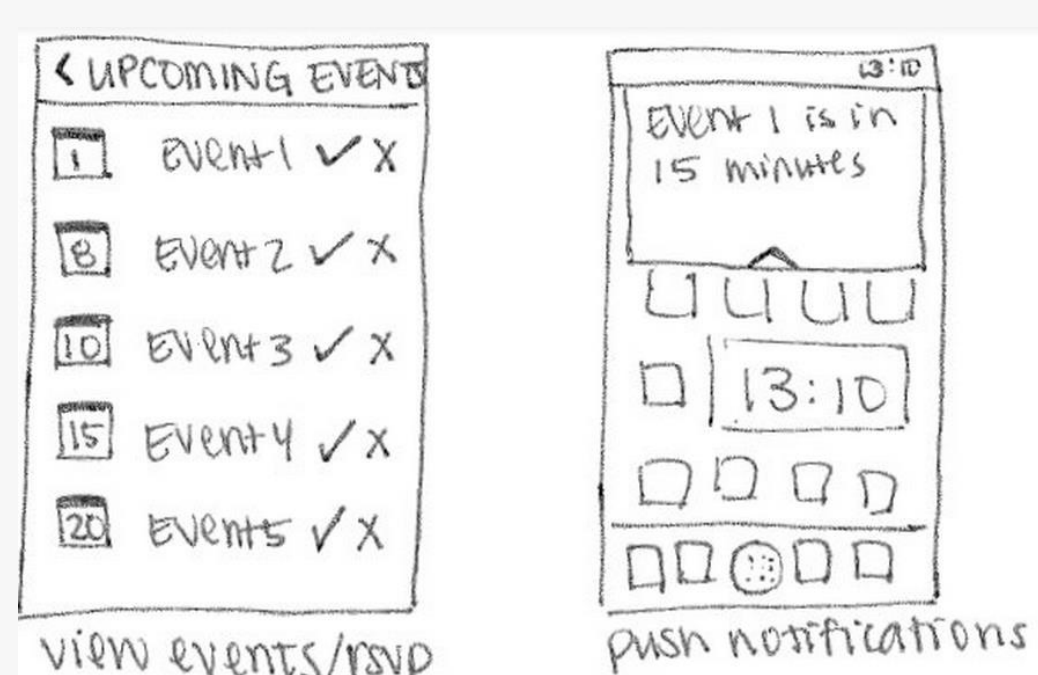 < UPCOMING EVENTS
1 Event 1 ✓ X
8 Event 2 ✓ X
10 Event 3 ✓ X
15 Event 4 ✓ X
20 Event 5 ✓ X
view events/rsvp
13:10
Event 1 is in
15 minutes
13:10
push notifications